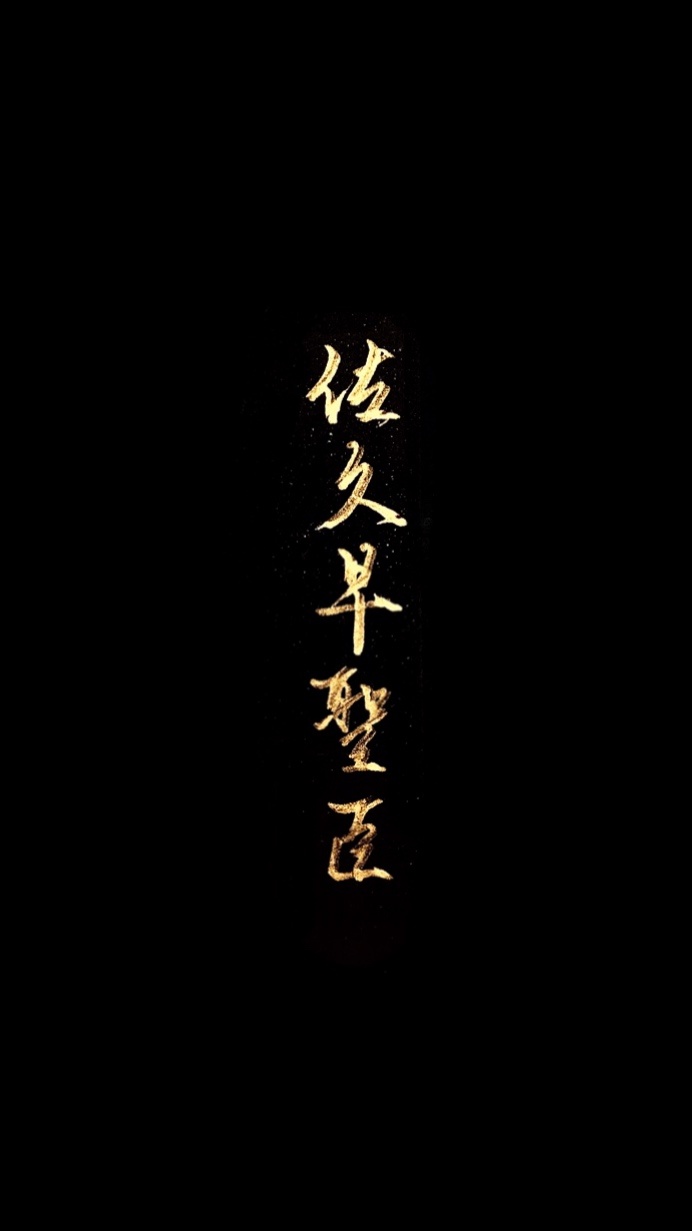 佐久早聖臣